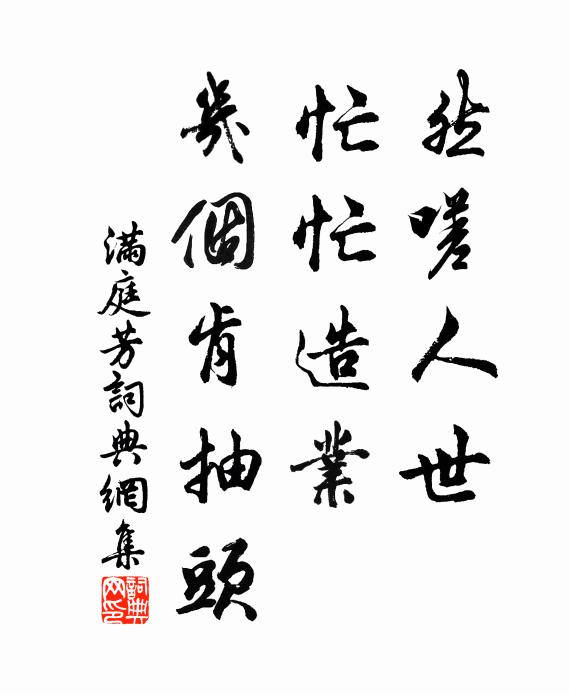 然嗟人世
忙忙造業
幾個肯抽頭
滿庭芳詞典網集
詞典网印